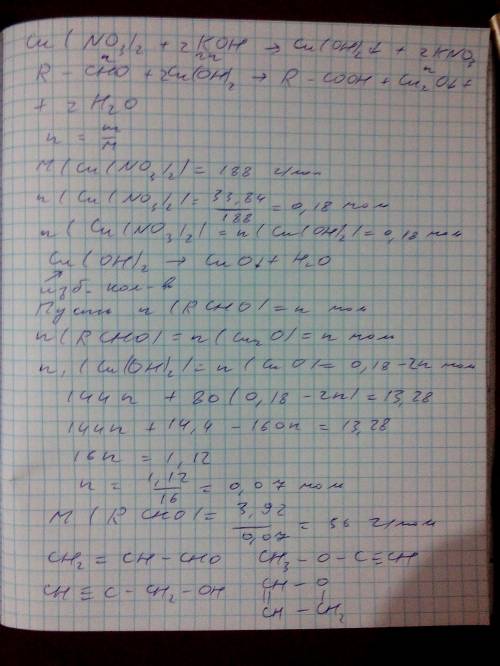 Cu(NO₃)₂ + 2KOH → Cu(OH)₂↓ + 2KNO₃
R – CHO + 2Cu(OH)₂ → R – COOH + Cu₂O↓ +
n n
2n
+ 2H₂O
n = m/M
M(Cu(NO₃)₂) = 188 г/моль
n(Cu(NO₃)₂) = 33,84/188 = 0,18 моль
n(Cu(NO₃)₂) = n(Cu(OH)₂) = 0,18 моль
Cu(OH)₂ → CuO↓ + H₂O
изб. кол-в
Пусть n(RCHO) = n моль
n(RCHO) = n(Cu₂O) = n моль
n₁(Cu(OH)₂) = n(CuO) = 0,18 – 2n моль
144n + 80(0,18 – 2n) = 13,28
144n + 14,4 – 160n = 13,28
16n = 1,12
n = 1,12/16 = 0,07 моль
M(RCHO) = 3,92/0,07 = 56 г/моль
CH₂ = CH – CHO CH₃ – O – C ≡ CH
CH ≡ C – CH₂ – OH CH – O
CH – CH₂